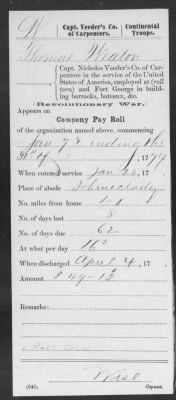 W Capt. Veeder's Co. of Carpenters. Continental Troops.
Thomas Weaton
(Capt. Nicholas Veeder's Co. of Carpenters in the service of the United States of America, employed at (roll torn) and Fort George in building barracks, bateaux, &c.
(Revolutionary War.)
Appears on
Company Pay Roll
of the organization named above, commencing
Jan 7 & ending the
, 1779
When entered service Jan 22, 17
Place of abode
No. miles from home
No. of days lost 8
No. of days due 62
At what per day 16s
When discharged April 4, 17
Amount £ 49-12
Remarks:
Roll torn
(545) Wise Copyist.